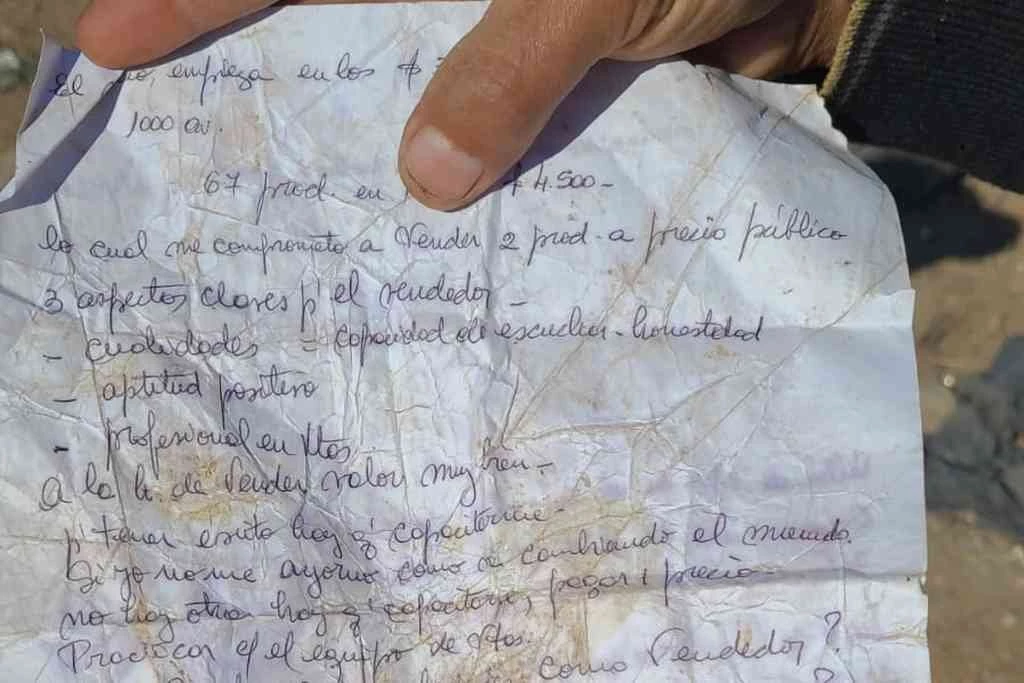 El empieza en los $
1000 av.
67 prod. en $ 4.500-
lo cual me comprometo a Vender 2 prod. a precio público
3 aspectos claves p' el vendedor -
- cualidades = capacidad de escuchar - honestidad
- aptitud positiva
- profesional en Vtas.
A la h. de Vender valor muy bien -
p' tener éxito hay q' capacitarme -
Si yo no me ayorno como va cambiando el mundo.
no hay otra hay q' capacitarse, pagar 1 precio -
Practicar el equipo de Vtas.
como Vendedor ?